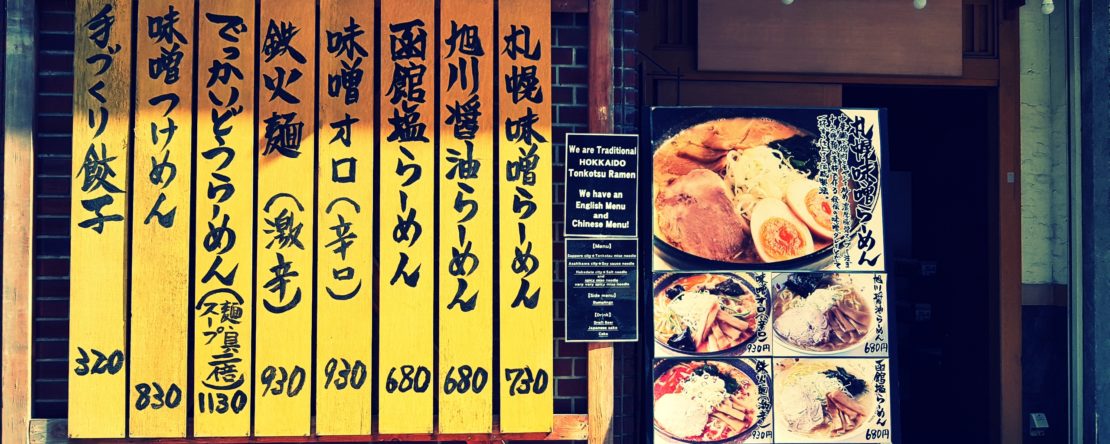 札幌味噌らーめん 730
旭川醤油らーめん 680
函館塩らーめん 680
味噌オロ（辛口） 930
鉄火麺（激辛） 930
でっかいどうらーめん（麺、具、スープ二倍） 1130
味噌つけめん 830
手づくり餃子 320
We are Traditional
HOKKAIDO
Tonkotsu Ramen
We have an
English Menu
and
Chinese Menu!
【Menu】
Sapporo city★Tonkotsu miso noodle
Asahikawa city★Soy sauce noodle
Hakodate city★Salt noodle
spicy miso noodle
very very spicy miso noodle
【Side menu】
Dumplings
【Drink】
Draft Beer
Japanese sake
Coke
札幌味噌らーめん
930円
旭川醤油らーめん
680円
函館塩らーめん
680円